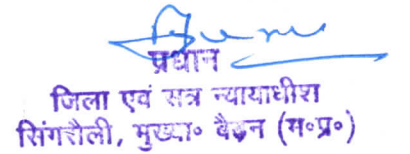 प्रधान
जिला एवं सत्र न्यायाधीश
सिंगरौली, मुख्या॰ बैढ़न (म॰प्र॰)